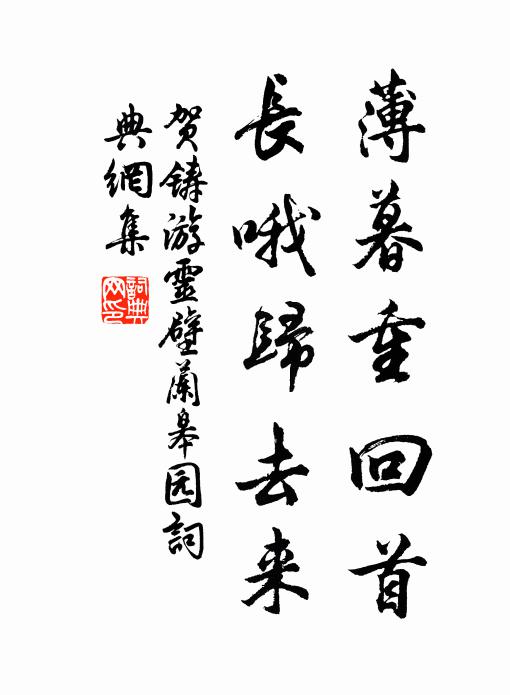 薄暮重回首
長哦歸去来
贺鑄游靈壁蘭皋园詞
典網集
詞典网印